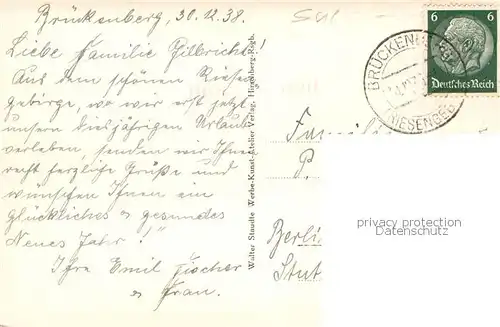 Brückenberg, 30.12.38.
Liebe Familie Hilbricht!
Aus dem schönen Riesen
gebirge, wo wir erst jetzt
unsern diesjährigen Urlaub
verleben, senden wir Ihnen
recht herzliche Grüße und
wünschen Ihnen ein
glückliches & gesundes
Neues Jahr!
Ihre Emil Fischer
& Frau.
Walter Stawitte Werbe-Kunst-Atelier Verlag, Hirschberg-Rsgb.
6 6
Deutsches Reich
BRÜCKENBERG
RIESENGEB
Famili
P.
Berlin
Stut
privacy protection
Datenschutz